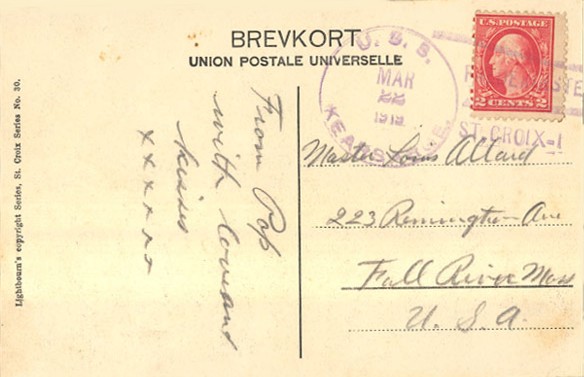 BREVKORT
UNION POSTALE UNIVERSELLE
U. S. S.
MAR
22
1919
KEARSARGE.
U.S. POSTAGE
2 CENTS 2
ST. CROIX-I
Lightbourn's copyright Series, St. Croix Series No. 30.
From Pop
with love and
kisses
x x x x x x
Master Louis Allard
223 Remington Ave
Fall River Mass
U. S. A.